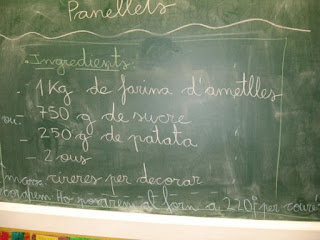 Panellets
Ingredients
- 1 Kg de farina d'ametlles
- 750 g de sucre
- 250 g de patata
- 2 ous
cireres per decorar
Ho posarem al forn a 220º per